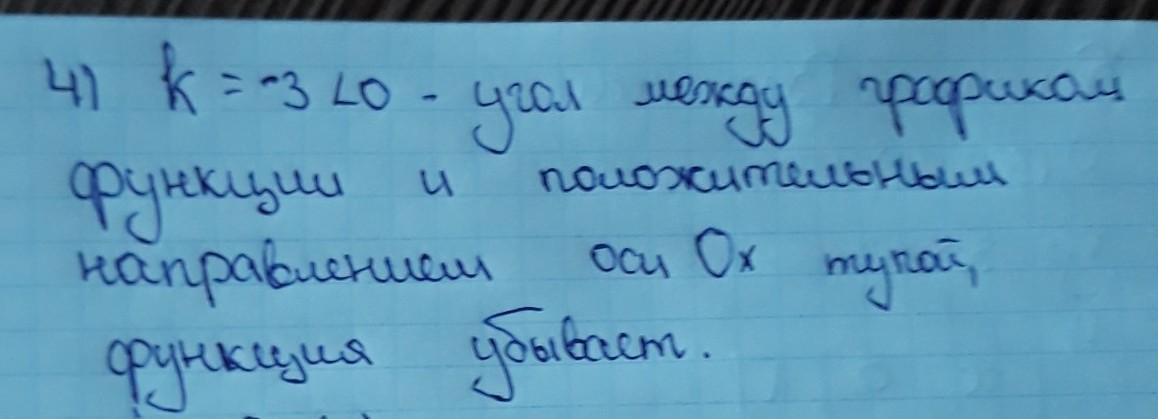 4) k = -3 < 0 - угол между графиком
функции и положительным
направлением оси Ox тупой,
функция убывает.